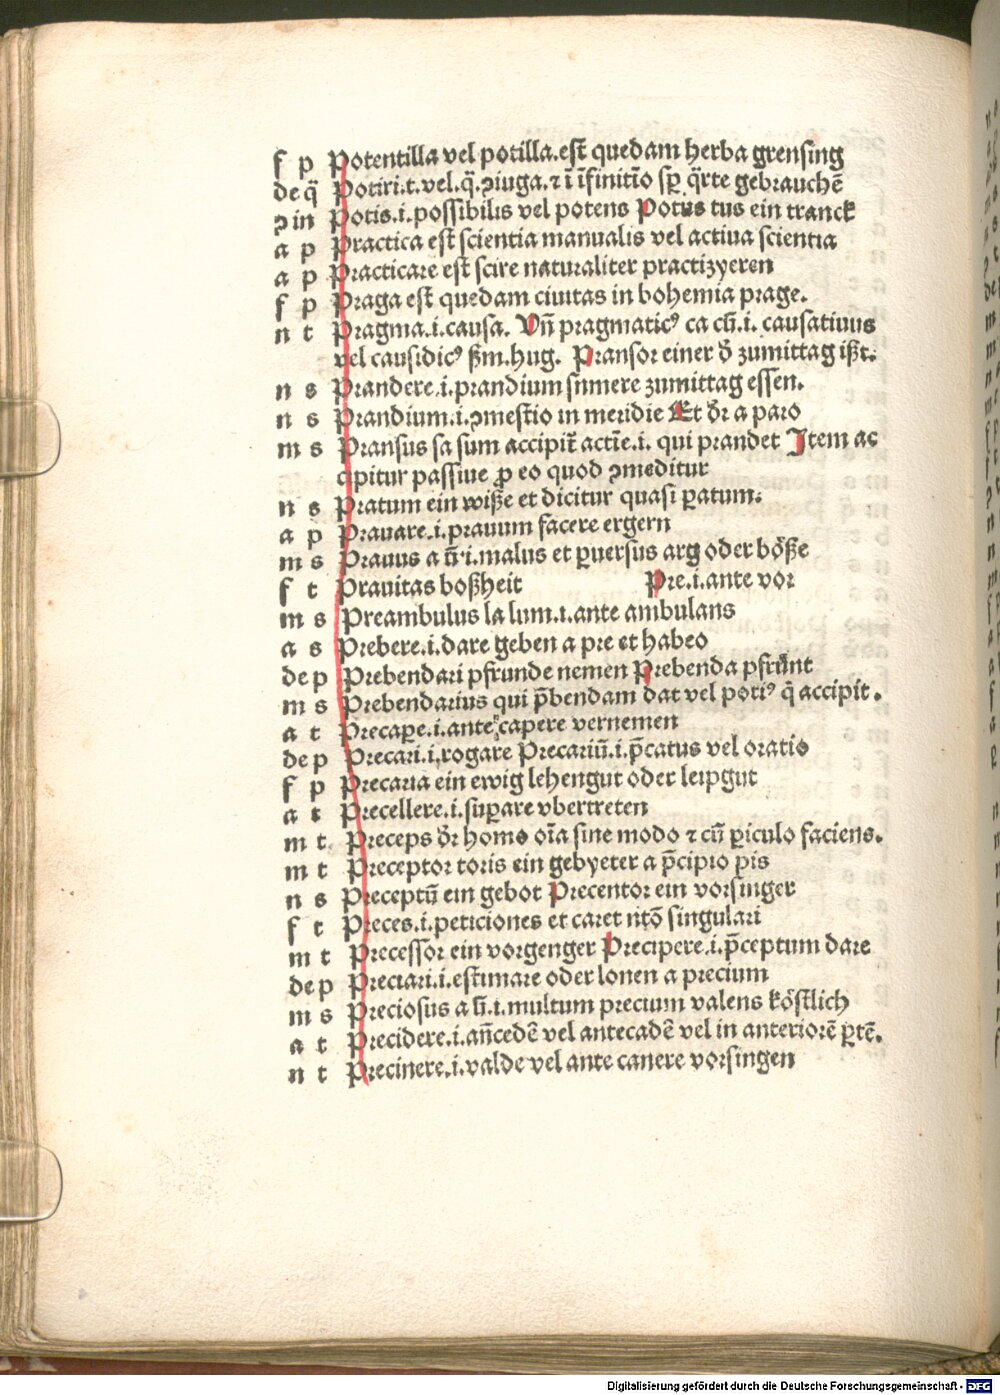 f p Potentilla vel potilla.est̄ quedam herba grensing
de q̈ Potiri.t.vel.q̈.ꝯiuga.⁊ ī īfinitīo sꝑ q̈rte gebrauchē
ꝯ in Potis.i.possibilis vel potens Potus tus ein tranck
a p Practica est scientia manualis vel actiua scientia
a p Practicare est scire naturaliter practizyeren
f p Praga est quedam ciuitas in bohemia prage.
n t Pragma.i.causa. Vn̄ pragmaticꝰ ca cū.i. causatiuus
vel causidicꝰ ßm.hug. Pransor einer d̄ zumittag ißt.
n s Prandere.i.prandium sumere zumittag essen.
n s Prandium.i.ꝯmestio in meridie Et dr̄ a paro
m s Pransus sa sum accipit̄ actīe.i. qui prandet Item ac
cipitur passiue ꝓ eo quod ꝯmeditur
n s Pratum ein wiße et dicitur quasi ꝑatum.
a p Prauare.i.prauum facere ergern
m s Prauus a ū.i.malus et ꝑuersus arg oder böße
f t Prauitas boßheit Pre.i.ante vor
m s Preambulus la lum.i.ante ambulans
a s Prebere.i.dare geben a pre et habeo
de p Prebendari pfrunde nemen Prebenda pfrünt
m s Prebendarius qui p̄bendam dat vel potiꝰ q̄ accipit.
a t Precaꝑe.i.ante capere vernemen
de p Precari.i.rogare Precariū.i.p̄catus vel oratio
f p Precaria ein ewig lehengut oder leipgut
a t Precellere.i.suꝑare vbertreten
m t. Preceps dr̄ homo oīa sine modo ⁊ cū ꝑiculo faciens.
m t Preceptor toris ein gebyeter a p̄cipio pis
n s Preceptū ein gebot Precentor ein vorsinger
f t Preces.i.peticiones et caret ntō singulari
m t Precessor ein vorgenger Precipere.i.p̄ceptum dare
de p Preciari.i.estimare oder lonen a precium
m s Preciosus a ū.i.multum precium valens köstlich
a t Precidere.i.an̄cedē vel antecadē vel in anteriorē ꝑtē.
n t Precinere.i.valde vel ante canere vorsingen
Digitalisierung gefördert durch die Deutsche Forschungsgemeinschaft - DFG